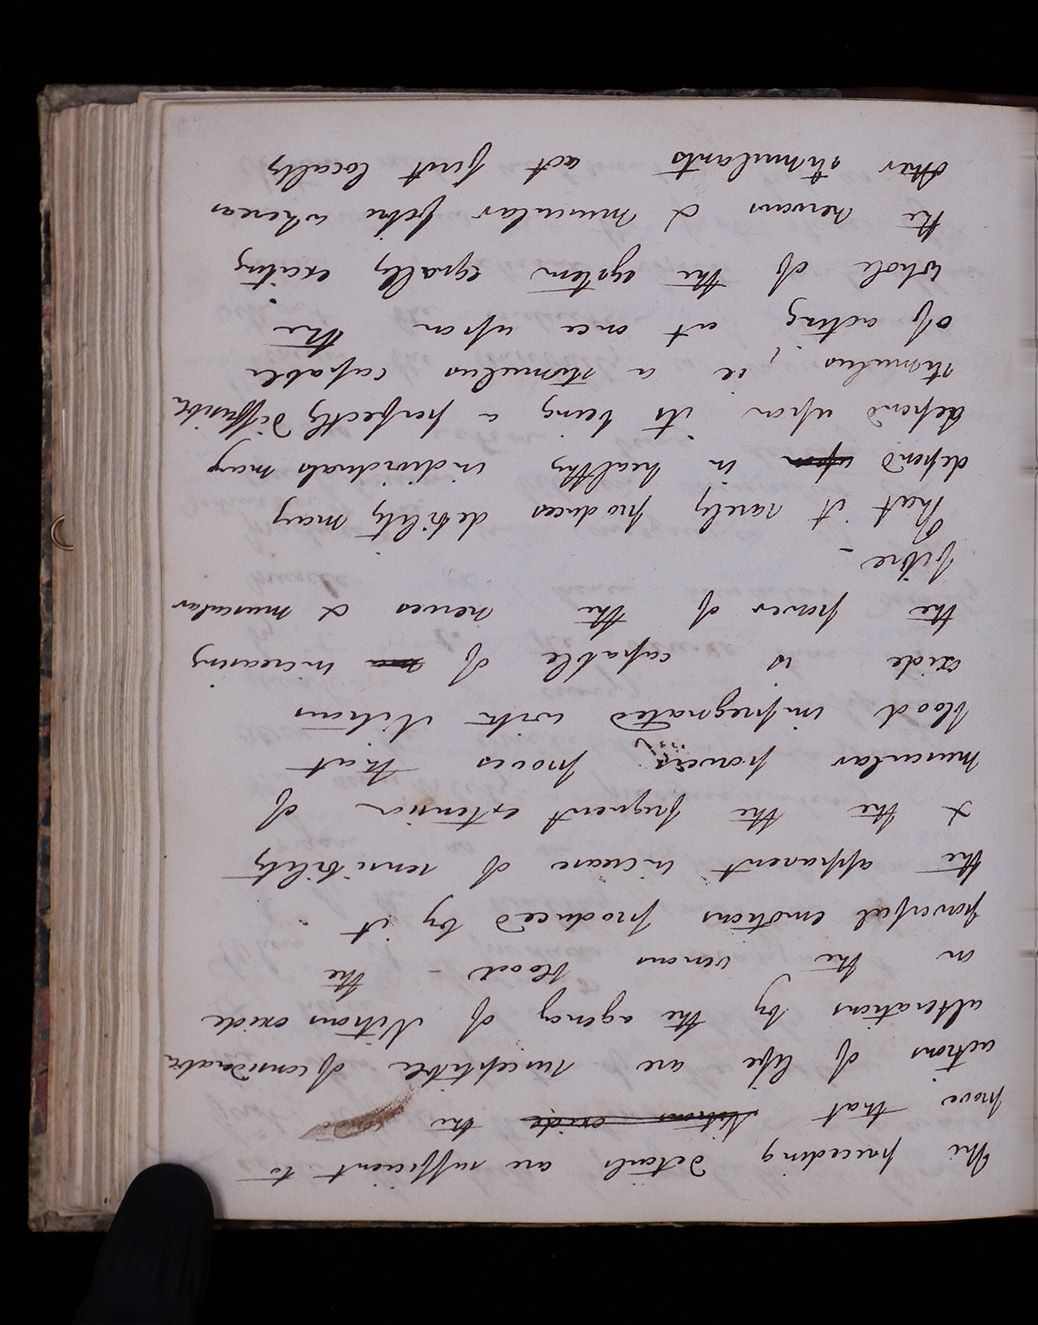 The preceding details are sufficient to
prove that Nitrous oxide the
actions of life are susceptible of considerable
alterations by the agency of Nitrous oxide
in the venous blood - the
powerful emotions produced by it
the apparent increase of sensibility
& the the frequent extension of
muscular powers proves that
blood impregnated with Nitrous
oxide is capable of increasing
the power of the nerves & muscular
fibre -
That it rarely produces debility may
depend upon in healthy individuals may
depend upon its being a perfectly diffusible
stimulus, ie a stimulus capable
of acting at once upon the
whole of the system equally exciting
the nervous & muscular fibre whereas
other stimulants act first locally